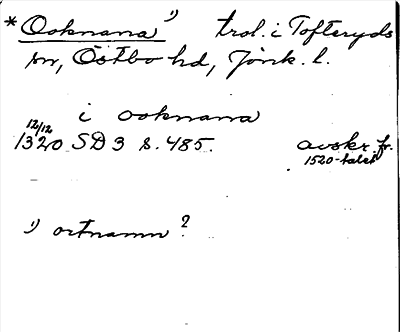 *Ooknana¹⁾ trol. i Tofteryds
sn, Östbo hd, Jönk. l.
i ooknana
12/12
1320 SD 3 s. 485. avskr. fr.
1520-talet
¹⁾ ortnamn?